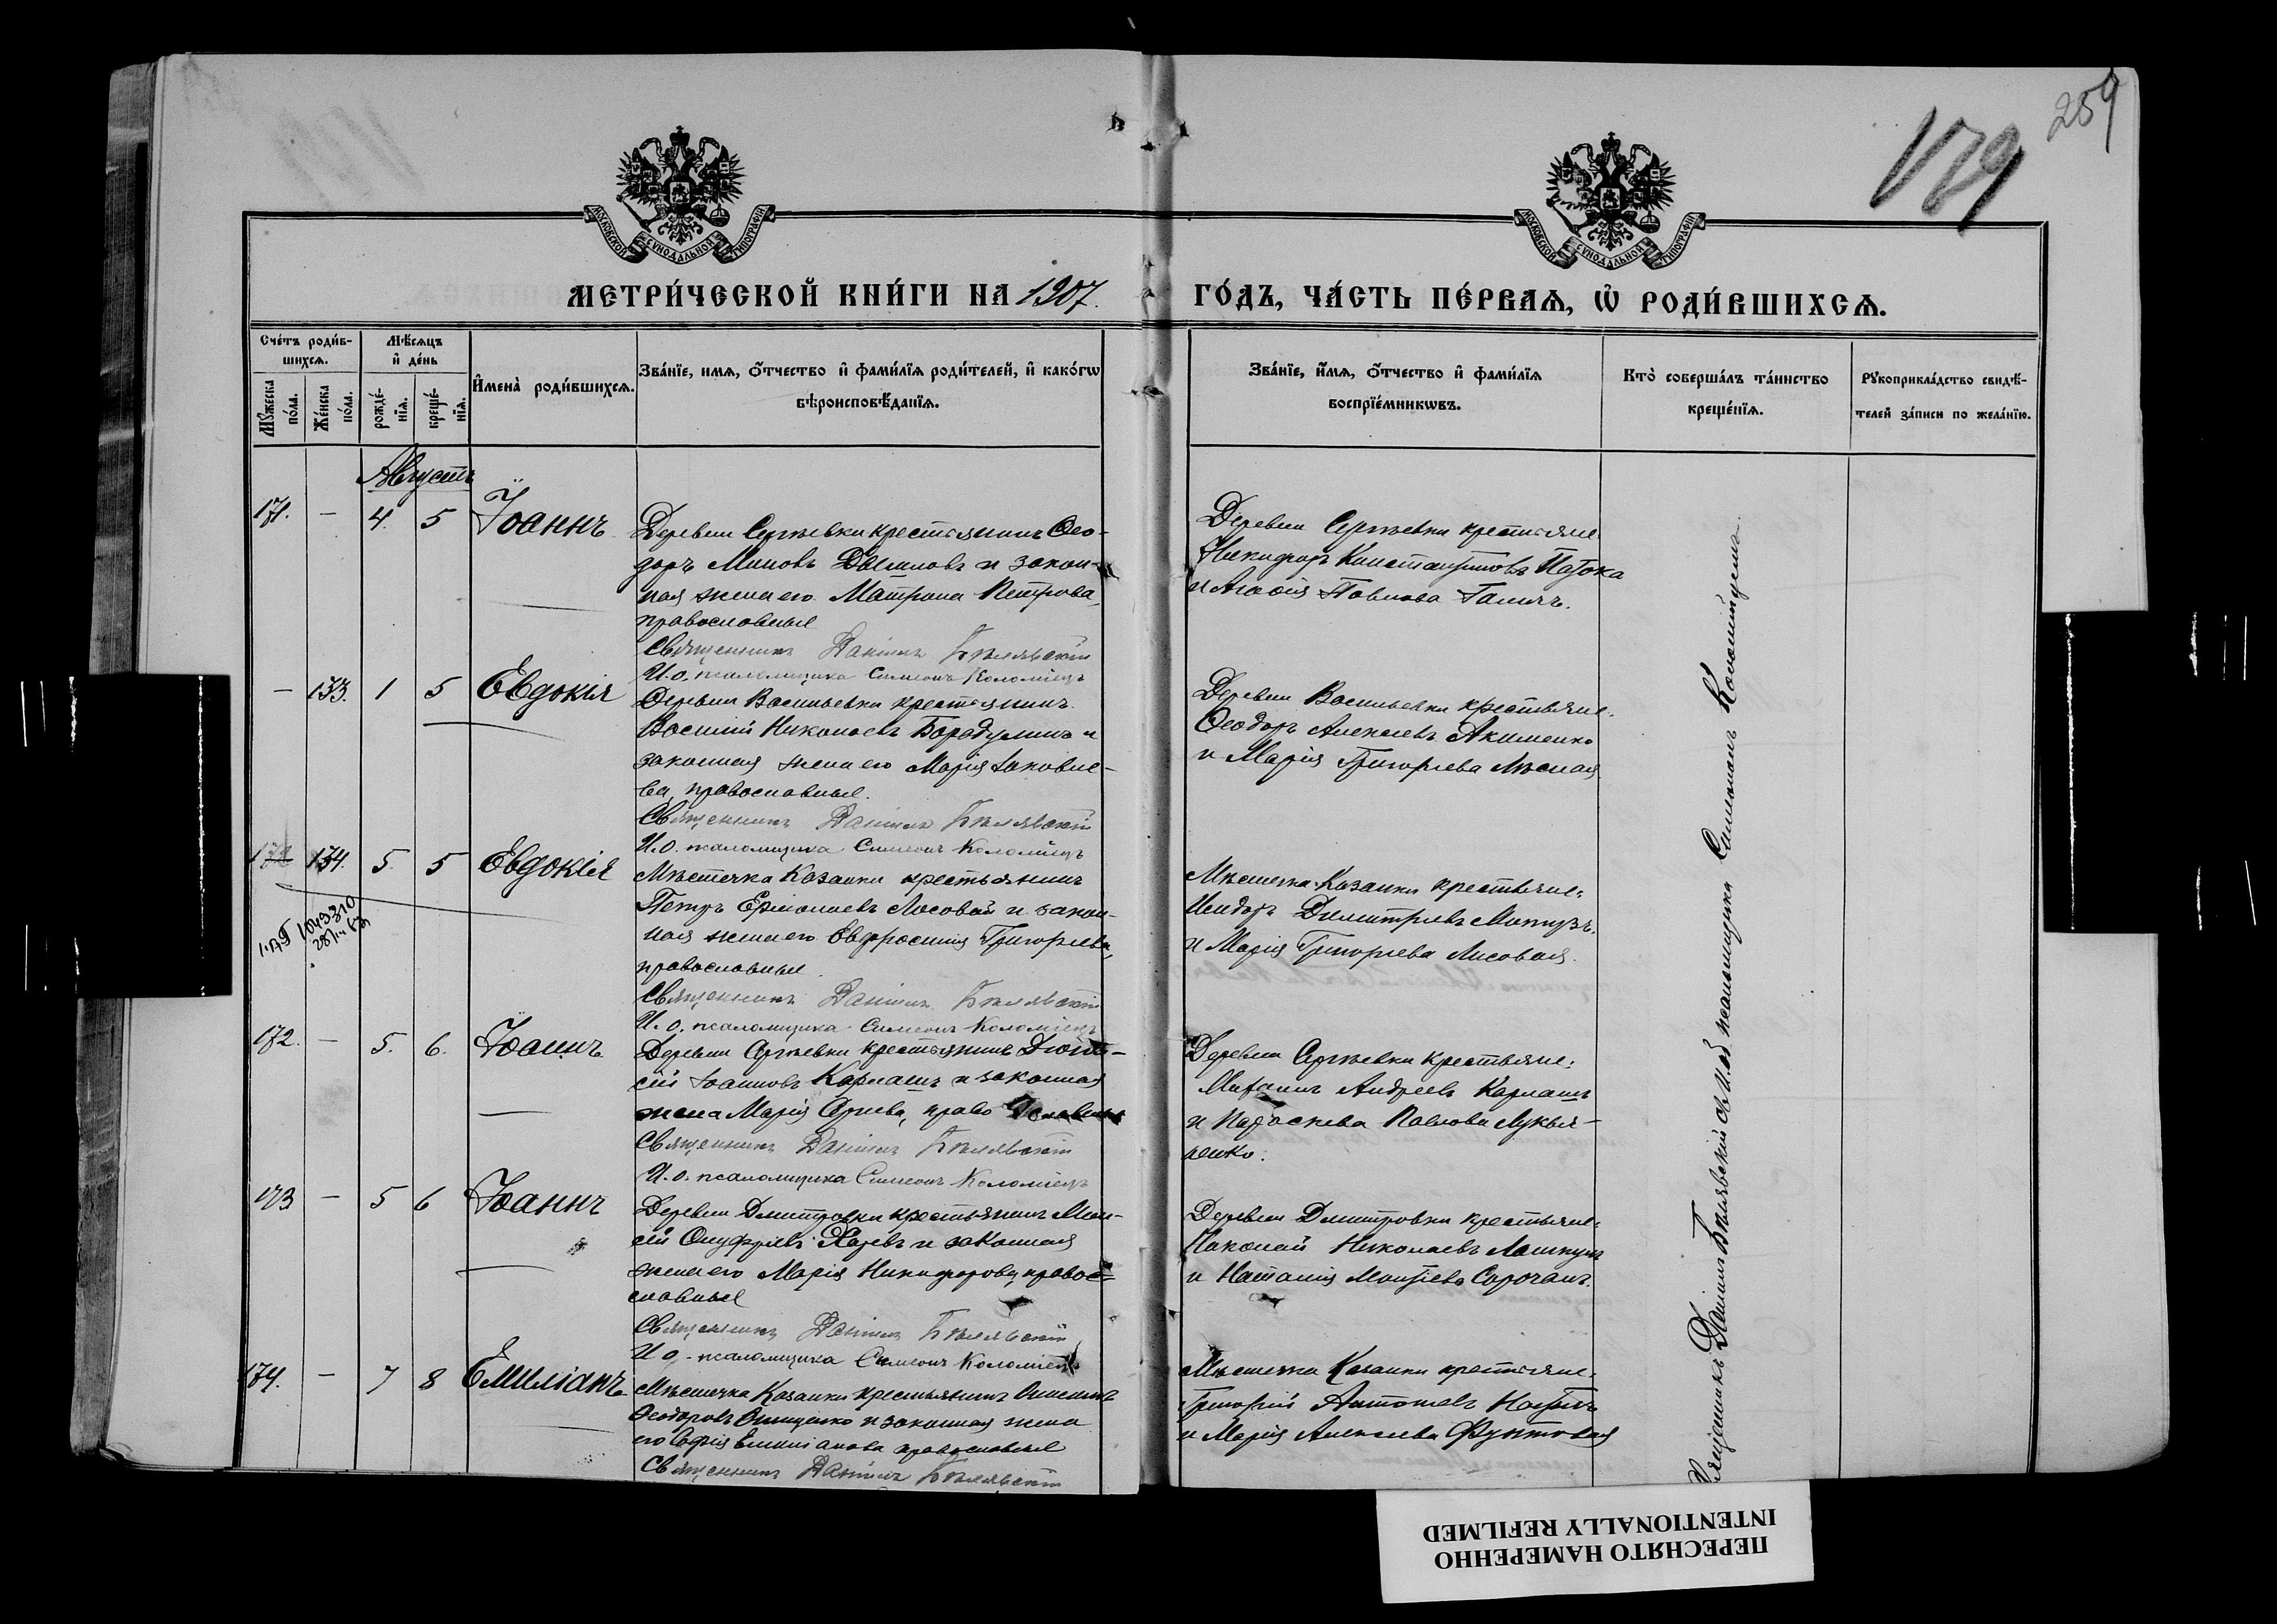 259
179
МОСКОВСКОЙ СѴНОДАЛЬНОЙ ТИПОГРАФІИ
МОСКОВСКОЙ СѴНОДАЛЬНОЙ ТИПОГРАФІИ
МЕТРИ́ЧЕСКОЙ КНИ́ГИ НА 1907.
ГО́ДЪ, ЧА́СТЬ ПЕ́РВАѦ, Ѡ҆ РОДИ́ВШИХСѦ.
Сче́тъ роди́в-
шихсѧ.
Мꙋжеска по́ла.
Же́нска по́ла.
Мѣ́сѧцъ
и҆ де́нь
рожде́-
нїѧ.
креще́-
нїѧ.
И҆мена̀ роди́вшихсѧ.
Зва́нїе, имѧ, ѻ҆́тчество и҆ фами́лїѧ роди́телей, и҆ како́гѡ
вѣроисповѣ́данїѧ.
Зва́нїе, и҆́мѧ, ѻ҆́тчество и҆ фами́лїѧ
воспрїе́мникѡвъ.
Кто̀ соверша́лъ та́инство
креще́нїѧ.
Рꙋкоприкла́дство свидѣ́-
телей за́писи по жела́нїю.
Августъ
171. — 4. 5 Іоаннъ
Деревни Сергѣевки крестьянинъ Ѳео-
доръ Миновъ и закон-
ная жена его Матрона Петрова,
православные
Священникъ Даніилъ Бѣлявскій
И. о. псаломщика Симеонъ Коломіецъ
Деревни Сергѣевки крестьяне
Никифоръ Константиновъ
и Агаѳія Павлова
— 133. 1 5 Евдокія
Деревни Васильевки крестьянинъ
Василій Николаевъ Бородулинъ и
законная жена его Марія Іаковле-
ва, православные.
Священникъ Даніилъ Бѣлявскій
И. о. псаломщика Симеонъ Коломіецъ
Деревни Васильевки крестьяне
Ѳеодоръ Алексѣевъ Акименко
и Марія Григорьева Лѣсная
172 134. 5. 5 Евдокія
Мѣстечка Казанки крестьянинъ
Петръ Ермолаевъ Лисовой и закон-
ная жена его Евфросинія Григорьева,
православные.
Священникъ Даніилъ Бѣлявскій
И. о. псаломщика Симеонъ Коломіецъ
Мѣстечка Казанки крестьяне:
Исидоръ Димитріевъ
и Марія Григорьева Лисовая.
172. — 5. 6. Іоаннъ
Деревни Сергѣевки крестьянинъ Діони-
сій Іоанновъ Карлашъ и законная
жена Марія православные
Священникъ Даніилъ Бѣлявскій
И. о. псаломщика Симеонъ Коломіецъ
Деревни Сергѣевки крестьяне:
Михаилъ Андреевъ Карлашъ
и Параскева Павлова Лукья-
ненко.
173 — 5 6 Іоаннъ
Деревни Дмитровки крестьянинъ Мои-
сей Онуфріевъ и законная
жена его Марія Никифорова, право-
славные
Священникъ Даніилъ Бѣлявскій
И о. псаломщика Симеонъ Коломіецъ
Деревни Дмитровки крестьяне:
Николай Николаевъ
и Наталія Сорочанъ.
174. — 7 8 Емиліанъ
Мѣстечка Казанки крестьянинъ
Ѳеодоровъ Онищенко и законная жена
его Софія Емиліанова православные
Священникъ Даніилъ Бѣлявскій
Мѣстечка Казанки крестьяне:
Григорій Антоновъ
и Марія Алексѣева Фунтовая
Священникъ Даніилъ Бѣлявскій съ И. об псаломщика Симеономъ Коломійцемъ
ПЕРЕСНЯТО НАМЕРЕННО
INTENTIONALLY REFILMED